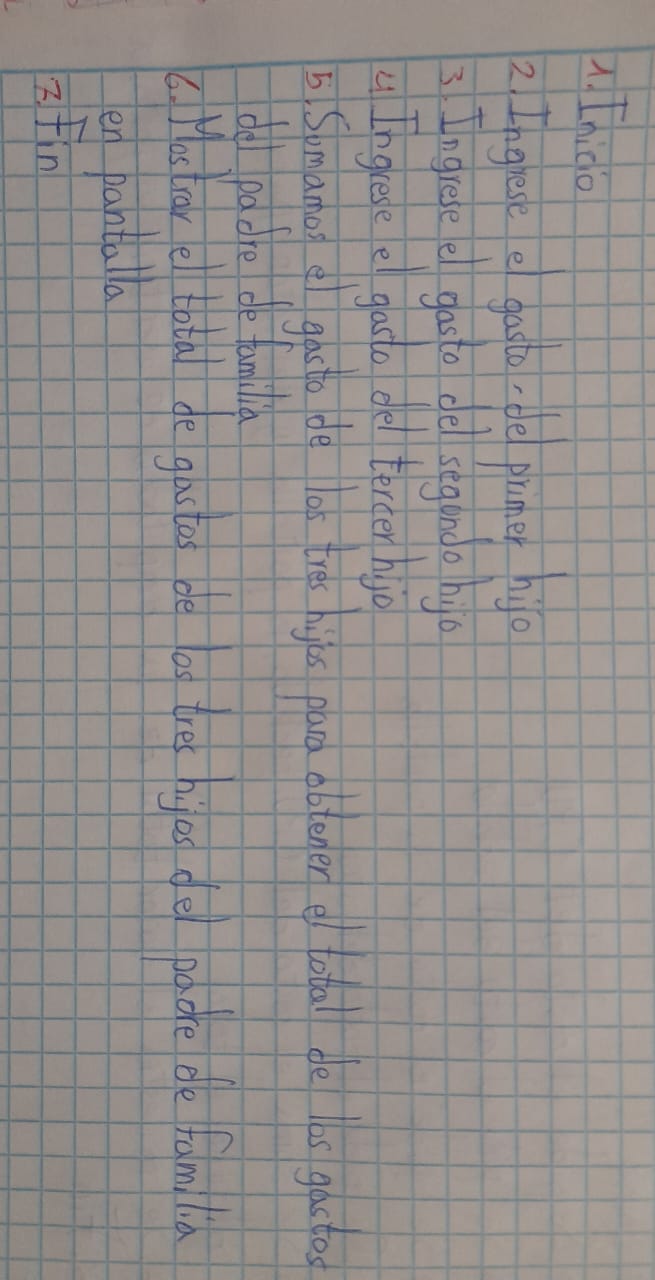 1. Inicio
2. Ingrese el gasto del primer hijo
3. Ingrese el gasto del segundo hijo
4 Ingrese el gasto del tercer hijo
5. Sumamos el gasto de los tres hijos para obtener el total de los gastos
del padre de familia
6. Mostrar el total de gastos de los tres hijos del padre de familia
en pantalla
7. Fin